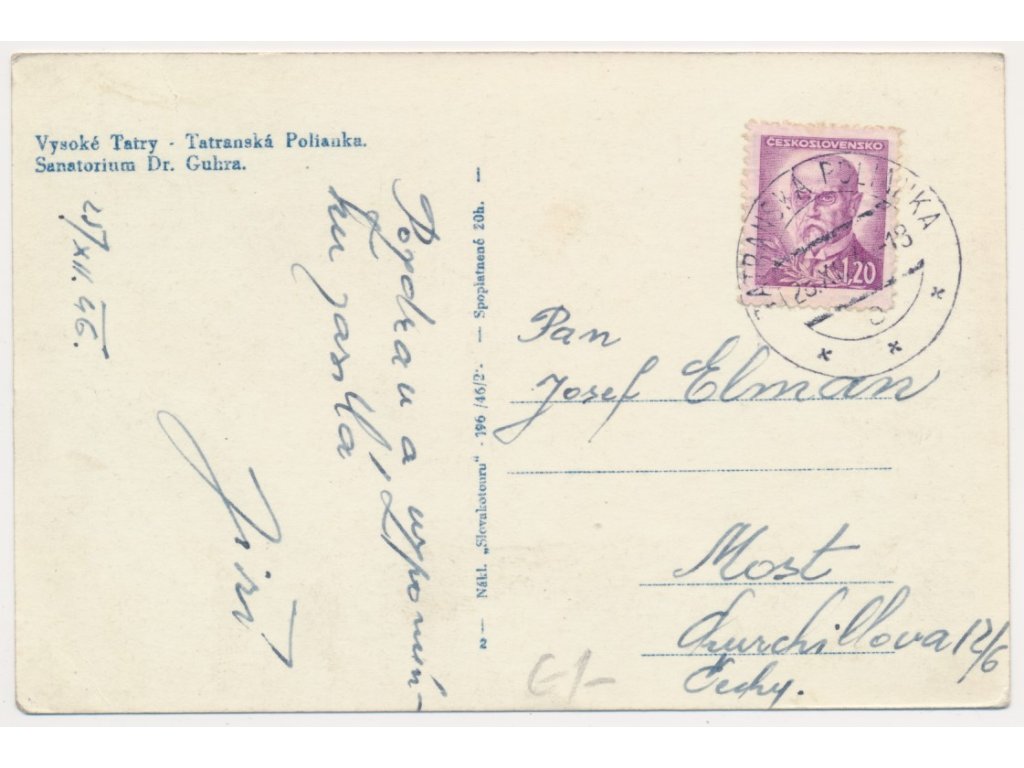 Vysoké Tatry - Tatranská Polianka.
Sanatorium Dr. Guhra.
25/XII. 46.
Pozdrav a vzpomín-
ku zasílá
Jiří
2 — Nákl. „Slovakotouru" - 196 /46/2 - — Spoplatnené 20h. —
ČESKOSLOVENSKO
1,20
TATRANSKÁ POLIANKA
-18
Pan
Josef Elman
Most
Churchillova 12/6
Čechy.